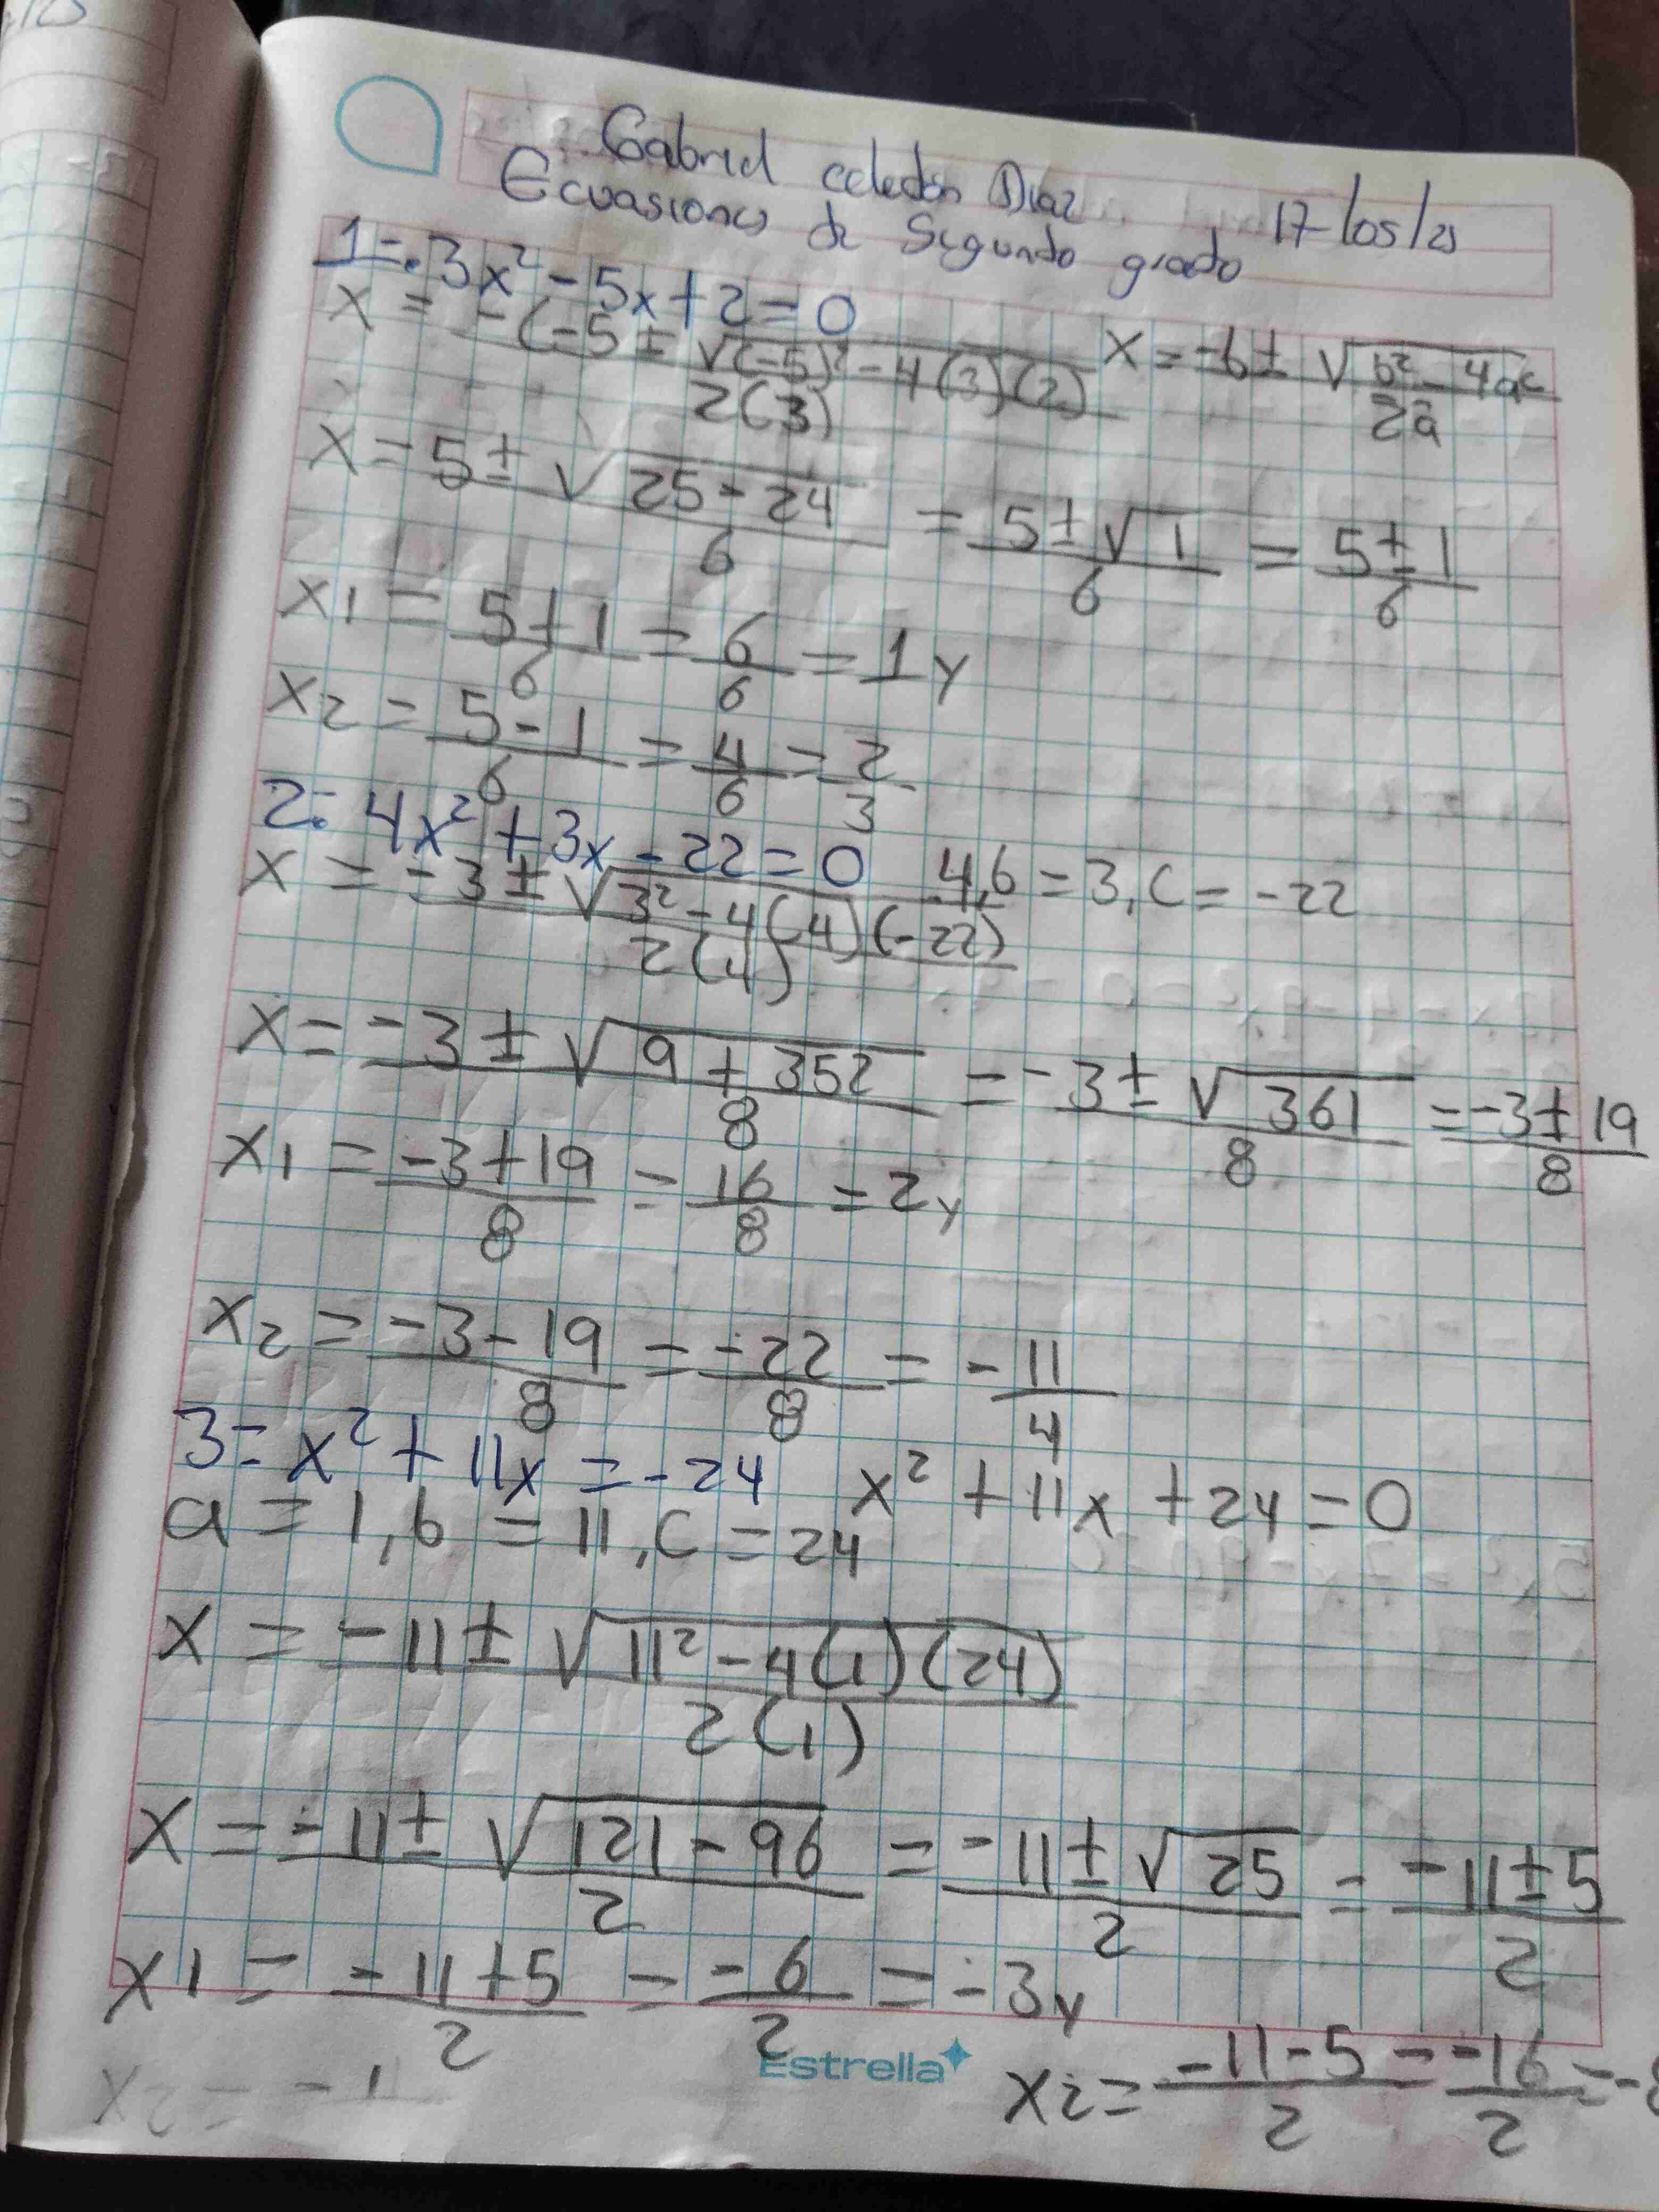 Gabriel celedón Diaz
Ecuasiones de Segundo grado 17/05/25
1=. 3x² - 5x + 2 = 0
x = -(-5 ± √(-5)² - 4(3)(2) / 2(3)   x = -b ± √b² - 4ac / 2a
x = 5 ± √25 - 24 / 6 = 5 ± √1 / 6 = 5 ± 1 / 6
x1 = 5 + 1 / 6 = 6 / 6 = 1 y
x2 = 5 - 1 / 6 = 4 / 6 = 2 / 3
2=. 4x² + 3x - 22 = 0   4, b = 3, c = -22
x = -3 ± √3² - 4(4)(-22) / 2(4)
x = -3 ± √9 + 352 / 8 = -3 ± √361 / 8 = -3 ± 19 / 8
x1 = -3 + 19 / 8 = 16 / 8 = 2 y
x2 = -3 - 19 / 8 = -22 / 8 = - 11 / 4
3= x² + 11x = -24   x² + 11x + 24 = 0
a = 1, b = 11, c = 24
x = -11 ± √11² - 4(1)(24) / 2(1)
x = -11 ± √121 - 96 / 2 = -11 ± √25 / 2 = -11 ± 5 / 2
x1 = -11 + 5 / 2 = -6 / 2 = -3 y
x2 = -11 - 5 / 2 = -16 / 2 = -8
Estrella